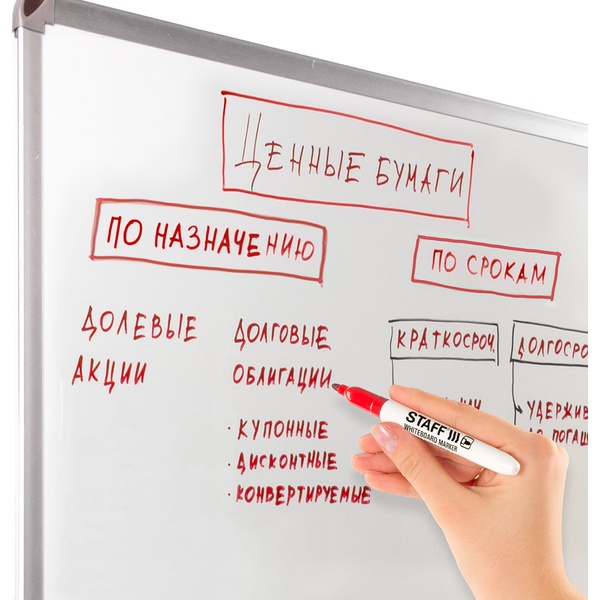 Ценные бумаги
По назначению
По срокам
Долевые
акции
Долговые
облигации
· купонные
· дисконтные
· конвертируемые
краткосроч.
STAFF
WHITEBOARD MARKER